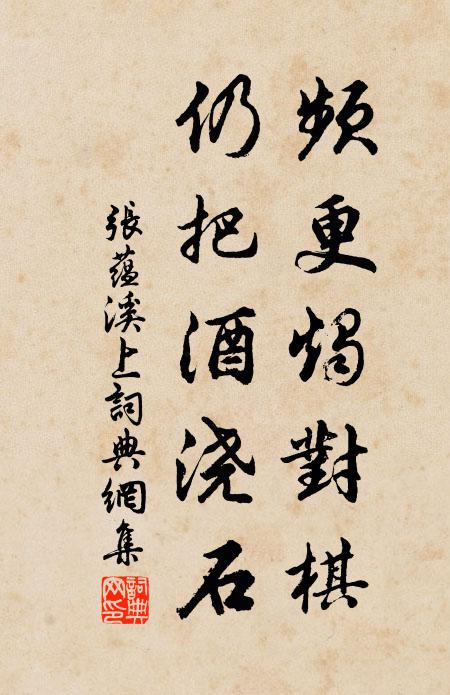 頻更燭對棋
仍把酒浇石
張蘊溪上詞典網集
詞典網印